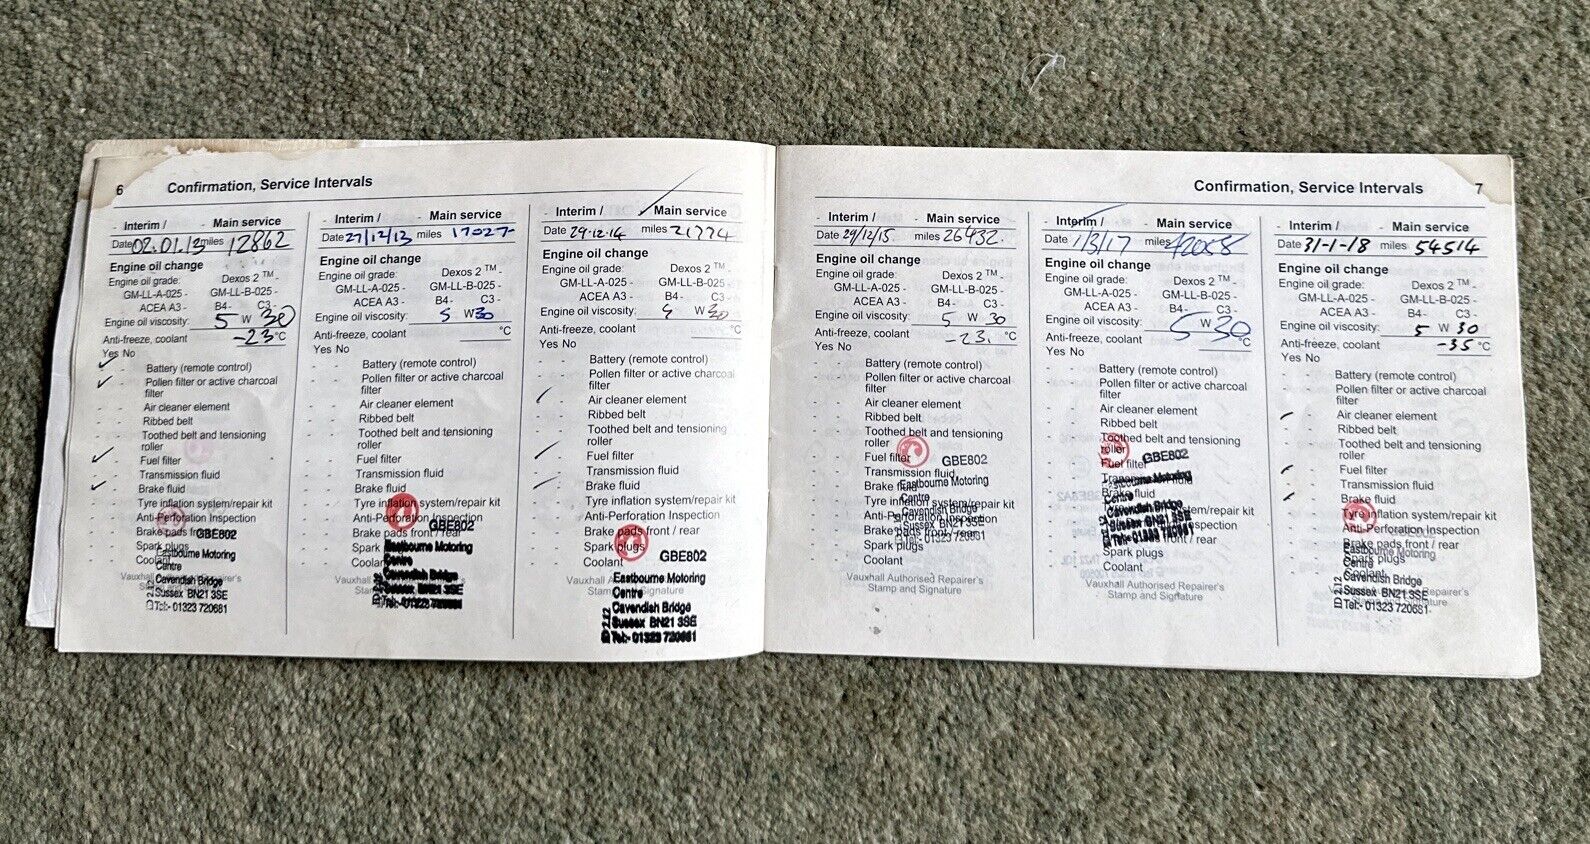 6
Confirmation, Service Intervals
- Interim / - Main service
Date 02.01.13 miles 12862
Engine oil change
Engine oil grade: Dexos 2 TM -
GM-LL-A-025 - GM-LL-B-025 -
ACEA A3 - B4- C3 -
Engine oil viscosity: 5 W 30
Anti-freeze, coolant -23 °C
Yes No
- Battery (remote control)
- Pollen filter or active charcoal
filter
- - Air cleaner element
- - Ribbed belt
- - Toothed belt and tensioning
roller
- Fuel filter
- - Transmission fluid
- Brake fluid
- - Tyre inflation system/repair kit
- - Anti-Perforation Inspection
- - Brake pads front / rear
- - Spark plugs
- - Coolant
Vauxhall Authorised Repairer's
Stamp and Signature
GBE802
Eastbourne Motoring
Centre
Cavendish Bridge
Sussex BN21 3SE
Tel:- 01323 720681
- Interim / - Main service
Date 27/12/13 miles 17027-
Engine oil change
Engine oil grade: Dexos 2 TM -
GM-LL-A-025 - GM-LL-B-025 -
ACEA A3 - B4- C3 -
Engine oil viscosity: 5 W 30
Anti-freeze, coolant °C
Yes No
- - Battery (remote control)
- - Pollen filter or active charcoal
filter
- - Air cleaner element
- - Ribbed belt
- - Toothed belt and tensioning
roller
- - Fuel filter
- - Transmission fluid
- - Brake fluid
- - Tyre inflation system/repair kit
- - Anti-Perforation Inspection
- - Brake pads front / rear
- - Spark
- - Coolant
Vauxhall
Stamp
GBE802
Eastbourne Motoring
Centre
Cavendish Bridge
Sussex BN21 3SE
Tel:- 01323 720681
- Interim / Main service
Date 29.12.14 miles 21774
Engine oil change
Engine oil grade: Dexos 2 TM -
GM-LL-A-025 - GM-LL-B-025 -
ACEA A3 - B4- C3 -
Engine oil viscosity: 5 W 30
Anti-freeze, coolant °C
Yes No
- - Battery (remote control)
- - Pollen filter or active charcoal
filter
- Air cleaner element
- - Ribbed belt
- - Toothed belt and tensioning
roller
- Fuel filter
- - Transmission fluid
- Brake fluid
- - Tyre inflation system/repair kit
- - Anti-Perforation Inspection
- - Brake pads front / rear
- - Spark plugs
- - Coolant
GBE802
Eastbourne Motoring
Centre
Cavendish Bridge
Sussex BN21 3SE
Tel:- 01323 720681
Confirmation, Service Intervals
7
- Interim / - Main service
Date 29/12/15 miles 26432.
Engine oil change
Engine oil grade: Dexos 2 TM -
GM-LL-A-025 - GM-LL-B-025 -
ACEA A3 - B4- C3 -
Engine oil viscosity: 5 W 30
Anti-freeze, coolant -23. °C
Yes No
- - Battery (remote control)
- - Pollen filter or active charcoal
filter
- - Air cleaner element
- - Ribbed belt
- - Toothed belt and tensioning
roller
- - Fuel filter
- - Transmission fluid
- Brake fluid
- - Tyre inflation system/repair kit
- - Anti-Perforation Inspection
- - Brake pads front / rear
- - Spark plugs
- - Coolant
Vauxhall Authorised Repairer's
Stamp and Signature
GBE802
Eastbourne Motoring
Centre
Cavendish Bridge
Sussex BN21 3SE
Tel:- 01323 720681
Interim / - Main service
Date 1/3/17 miles 42058
Engine oil change
Engine oil grade: Dexos 2 TM -
GM-LL-A-025 - GM-LL-B-025 -
ACEA A3 - B4- C3 -
Engine oil viscosity: 5 W 30
Anti-freeze, coolant °C
Yes No
- - Battery (remote control)
- - Pollen filter or active charcoal
filter
- - Air cleaner element
- - Ribbed belt
- - Toothed belt and tensioning
roller
- - Fuel filter
- - Transmission fluid
- - Brake fluid
Inspection
front / rear
- - Spark plugs
- - Coolant
Vauxhall Authorised Repairer's
Stamp and Signature
GBE802
Eastbourne Motoring
Centre
Cavendish Bridge
Sussex BN21 3SE
Tel:- 01323 720681
- Interim / - Main service
Date 31-1-18 miles 54514
Engine oil change
Engine oil grade: Dexos 2 TM -
GM-LL-A-025 - GM-LL-B-025 -
ACEA A3 - B4- C3 -
Engine oil viscosity: 5 W 30
Anti-freeze, coolant -35 °C
Yes No
- - Battery (remote control)
- - Pollen filter or active charcoal
filter
- Air cleaner element
- - Ribbed belt
- - Toothed belt and tensioning
roller
- Fuel filter
- - Transmission fluid
- Brake fluid
- - Tyre inflation system/repair kit
- - Anti-Perforation Inspection
- - Brake pads front / rear
- - Spark plugs
- - Coolant
Eastbourne Motoring
Centre
Cavendish Bridge
Sussex BN21 3SE
Tel:- 01323 720681